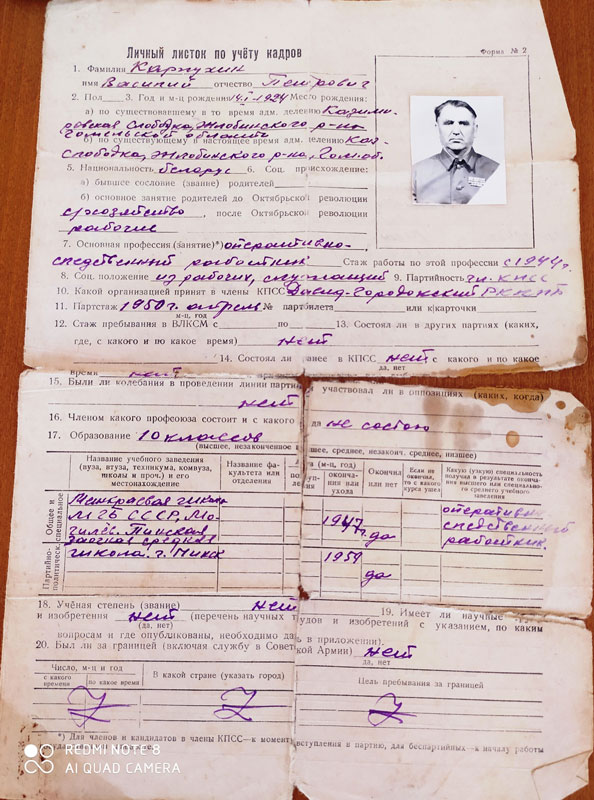 Личный листок по учёту кадров
Форма № 2
1. Фамилия Каржухин
имя Василий отчество Петрович
2. Пол 3. Год и м-ц рождения 14.I-1924 Место рождения:
а) по существовавшему в то время адм. делению Казими-
ровская Слободка, Жлобинского р-на
Гомельской области
б) по существующему в настоящее время адм. делению Каз.
слободка, Жлобинского р-на, Гом. об.
5. Национальность белорус 6. Соц. происхождение:
а) бывшее сословие (звание) родителей
б) основное занятие родителей до Октябрьской революции
с/хозяйство, после Октябрьской революции
рабочие
7. Основная профессия (занятие)*) оперативно-
следственный работник Стаж работы по этой профессии с 1944 г.
8. Соц. положение из рабочих, служащий 9. Партийность чл. КПСС
10. Какой организацией принят в члены КПСС Давид-Городокский РК КПБ
11. Партстаж 1950 г. апрель № партбилета или карточки
м-ц, год
12. Стаж пребывания в ВЛКСМ с по 13. Состоял ли в других партиях (каких,
где, с какого и по какое время) нет
14. Состоял ли ранее в КПСС нет с какого и по какое
да, нет
время нет
15. Были ли колебания в проведении линии партии участвовал ли в оппозициях (каких, когда)
нет
16. Членом какого профсоюза состоит и с какого года не состою
17. Образование 10 классов
(высшее, незаконченное высшее, среднее, незаконч. среднее, низшее)
Название учебного заведения (вуза, втуза, техникума, комвуза, школы и проч.) и его местонахождение
Название факультета или отделения
окончания или ухода
Окончил или нет
Если не окончил, то с какого курса ушел
Какую (узкую) специальность получил в результате окончания высшего или специального среднего учебного заведения
Общее и специальное
Межкраевая школа
МГБ СССР, Мо-
гилёв. Пинская
заочная средняя
школа. г. Пинск
1947 г. да
оперативно
следственный
работник.
Партийно-политическ.
1959 да
18. Учёная степень (звание) нет 19. Имеет ли научные труды
и изобретения нет (перечень научных трудов и изобретений с указанием, по каким
(да, нет)
вопросам и где опубликованы, необходимо дать в приложении).
20. Был ли за границей (включая службу в Советской Армии) нет
да, нет
Число, м-ц и год
с какого времени
по какое время
В какой стране (указать город)
Цель пребывания за границей
Z Z Z
*) Для членов и кандидатов в члены КПСС—к моменту вступления в партию, для беспартийных—к началу работы
REDMI NOTE 8
AI QUAD CAMERA